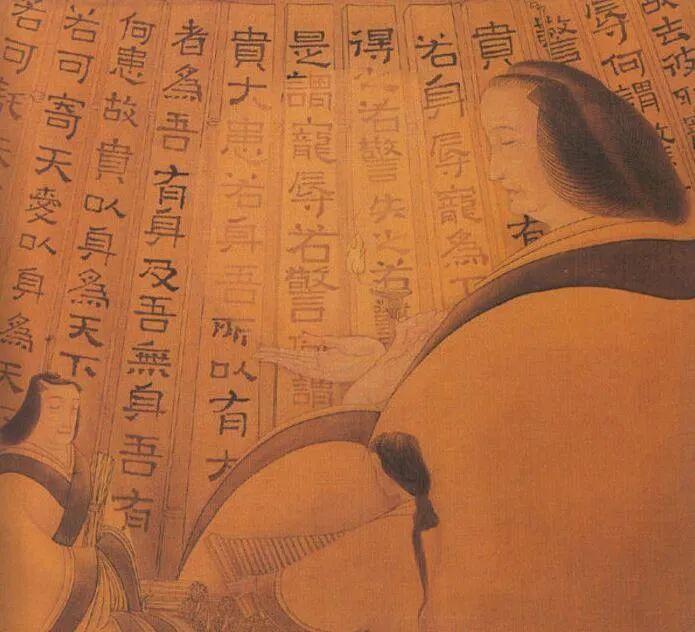 故去彼
辱何謂
驚
有
貴
若身辱寵為下
得之若驚失之若驚
是謂寵辱若驚何謂
貴大患若身吾所以有大
者為吾有身及吾無身吾有
何患故貴以身為天下
若可寄天愛以身為天
若可託天